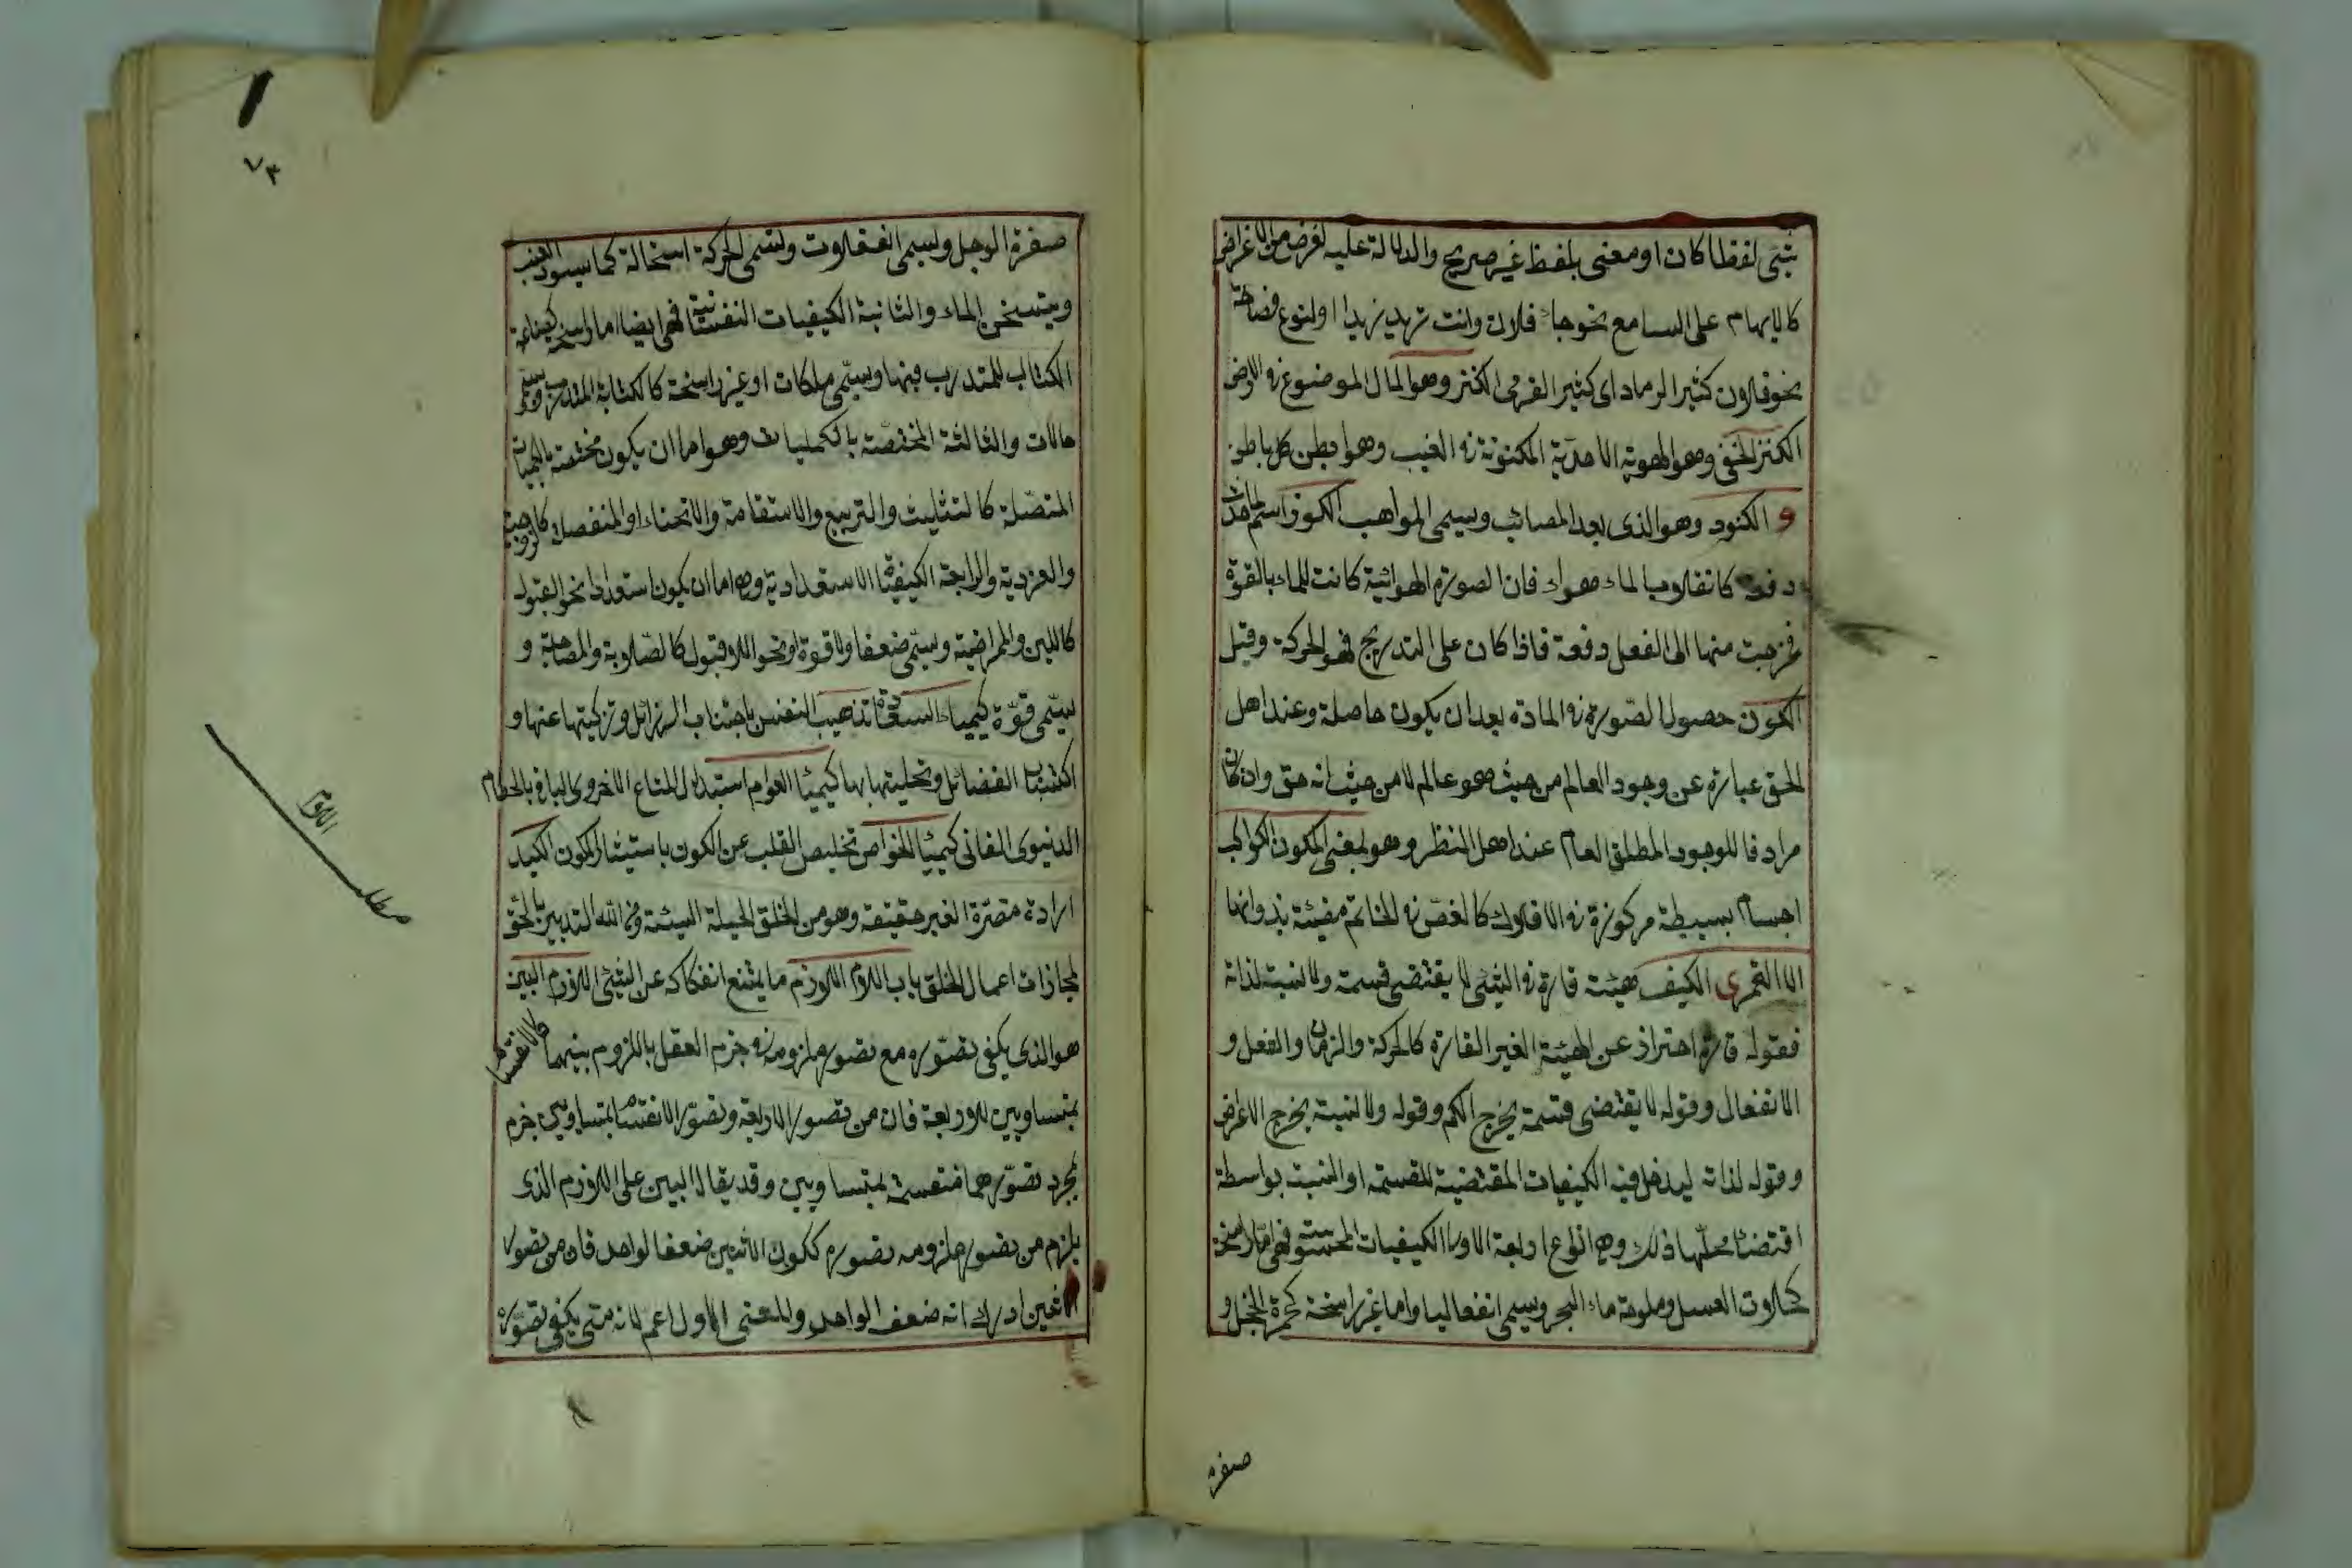 شئ لفظا كان او معنى بلفظ غير صريح والدلالة عليه لغرض من الاغراض
كالابهام على السامع نحو جاء فلان وانت تريد زيدا او لنوع فصاحة
نحو فلان كثير الرماد اى كثير القرى الكنز وهو المال الموضوع فى الارض
الكنز المخفى وهو الهوية الاحدية المكنونة فى الغيب وهو ابطن كل باطن
و الكنود وهو الذى يعد المصائب وينسى المواهب الكون اسم لما حدث
دفعة كانقلاب الماء هواء فان الصورة الهوائية كانت للماء بالقوة
فخرجت منها الى الفعل دفعة فاذا كان على التدريج فهو الحركة وقيل
الكون حصول الصورة فى المادة بعد ان يكون حاصلة وعند اهل
الحق عبارة عن وجود العالم من حيث هو عالم لا من حيث انه حق وان كان
مرادفا للوجود المطلق العام عند اهل النظر وهو بمعنى المكون الكواكب
اجسام بسيطة مركوزة فى الافلاك كالفص فى الخاتم مضيئة بذواتها
الا القمرى الكيف هيئة قارة فى الشئ لا يقتضى قسمة ولا نسبة لذاته
فقوله قارة احتراز عن الهيئة الغير القارة كالحركة والزمان والفعل و
الانفعال وقوله لا يقتضى قسمة يخرج الكم وقوله ولا نسبة يخرج الاعراض
وقوله لذاته ليدخل فيه الكيفيات المقتضية للقسمة او النسبة بواسطة
اقتضاء محلها ذلك وهى انواع اربعة الاولى الكيفيات المحسوسة فهى اما راسخة
كحلاوت العسل وملوحة ماء البحر ويسمى انفعاليا واما غير راسخة كحمرة الخجل و
صفرة
٧٣
صفرة الوجل ويسمى انفعالات وتسمى الحركة استحالة كما يسود العنب
ويتسخن الماء والثانية الكيفيات النفسانية فهى ايضا اما راسخة كصناعة
الكتاب للمتدرب فيها وسمى ملكات او غير راسخة كالكتابة المتدرب وسمى
حالات والثالثة المختصة بالكميات وهو اما ان يكون مختصة بالكميات
المتصلة كالتثليث والتربيع والاستقامة والانحناء او المنفصلة كالزوجية
والفردية والرابعة الكيفيات الاستعدادية وهى اما ان يكون استعدادا نحو القبول
كاللين والمراضية وسمى ضعفا ولا قوة او نحو اللا قبول كالصلابة والمصاحة و
يسمى قوة كيمياء السعادة تهذيب النفس باجتناب الرزائل وتزكيتها عنها و
اكتساب الفضائل وتحليتها بها كيمياء العوام استبدال المتاع الاخروى الباقى بالحطام
الدنيوى الفانى كيمياء الخواص تخليص القلب عن الكون باستيثار المكون الكيد
ارادة مضرة الغير خفية وهو من الخلق الحيلة السيئة ومن الله التدبير بالحق
لمجازات اعمال الخلق باب اللام اللازم ما يمتنع انفكاكه عن الشئ اللازم البين
هو الذى يكفى تصوره مع تصور ملزومه فى جزم العقل باللزوم بينهما كالانقسام
بمتساويين للاربعة فان من تصور الاربعة وتصور الانقسام بمتساويين جزم
بمجرد تصورهما منقسمة بمتساويين وقد يقال البين على اللازم الذى
يلزم من تصور ملزومه تصوره ككون الاثنين ضعفا لواحد فان من تصور
الاثنين ادرك انه ضعف الواحد والمعنى الاول اعم لانه متى يكفى تصوره
مطلب
اللام